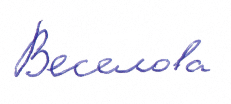 Веселова